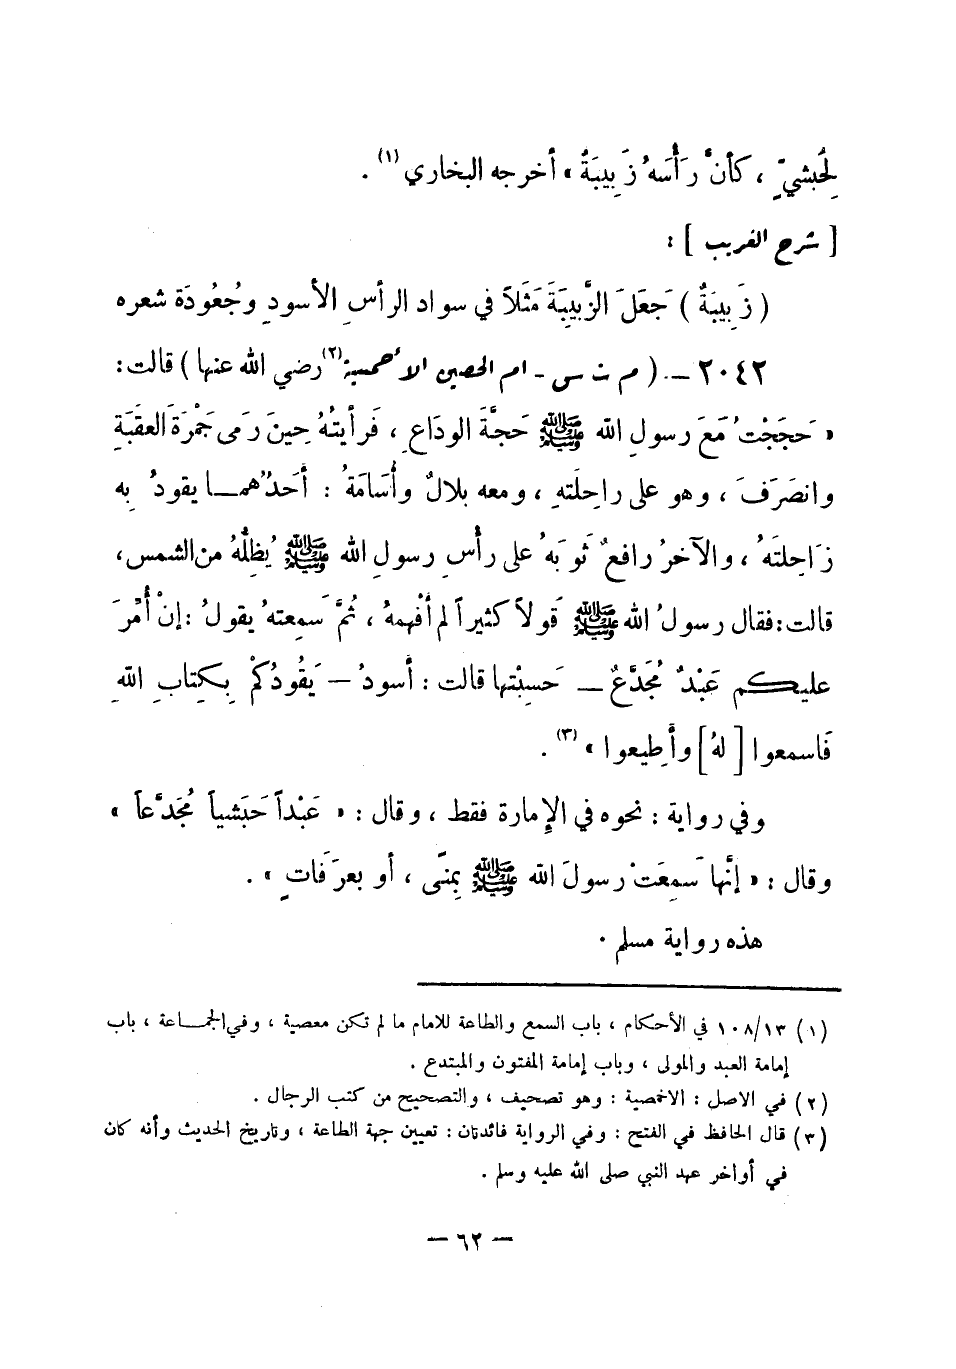 لِحَبشيٍّ ، كأنَّ رَأْسَهُ زَبِيبَةٌ » أخرجه البخاري (١) .
[ شرح الغريب ] :
( زَبِيبَةٌ ) جَعَلَ الزَّبيبَةَ مَثَلاً في سواد الرأسِ الأسودِ وجُعُودَة شعره
٢٠٤٢ – ( م ت س - ام الحصين الأحمسية (٢) رضي الله عنها ) قالت :
« حَجَجْتُ مَعَ رسولِ الله ﷺ حَجَّةَ الوداعِ ، فَرأيتُهُ حِينَ رَمى جَمْرَةَ العقَبَةِ
وانصَرَفَ ، وهو على راحِلَتهِ ، ومعه بلالٌ وأُسَامَةُ : أَحَدُهمـا يقودُ به
رَاحِلتَهُ ، والآخرُ رافعٌ ثَوبَهُ على رأْسِ رسولِ الله ﷺ يُظِلُّهُ من الشمس ،
قالت : فقال رسولُ الله ﷺ قَولاً كثيراً لم أفْهمهُ ، ثُمَّ سَمِعتهُ يقولُ : إنْ أُمِّرَ
عليكم عَبْدٌ مُجَدَّعٌ – حَسِبْتها قالت : أسودُ – يَقُودُكُمْ بِكِتابِ اللهِ
فَاسمعوا [ لهُ ] وأَطِيعوا » (٣) .
وفي رواية : نحوه في الإمارة فقط ، وقال : « عَبْداً حَبَشياً مُجَدَّعاً »
وقال : « إنَّها سَمِعَتْ رسولَ الله ﷺ بِمنًى ، أو بعرَفَاتٍ » .
هذه رواية مسلم .
(١) ١٠٨/١٣ في الأحكام ، باب السمع والطاعة للامام ما لم تكن معصية ، وفي الجمـاعة ، باب
إمامة العبد والمولى ، وباب إمامة المفتون والمبتدع .
(٢) في الاصل : الاخمصية : وهو تصحيف ، والتصحيح من كتب الرجال .
(٣) قال الحافظ في الفتح : وفي الرواية فائدتان : تعيين جهة الطاعة ، وتاريخ الحديث وأنه كان
في أواخر عهد النبي صلى الله عليه وسلم .
– ٦٢ –